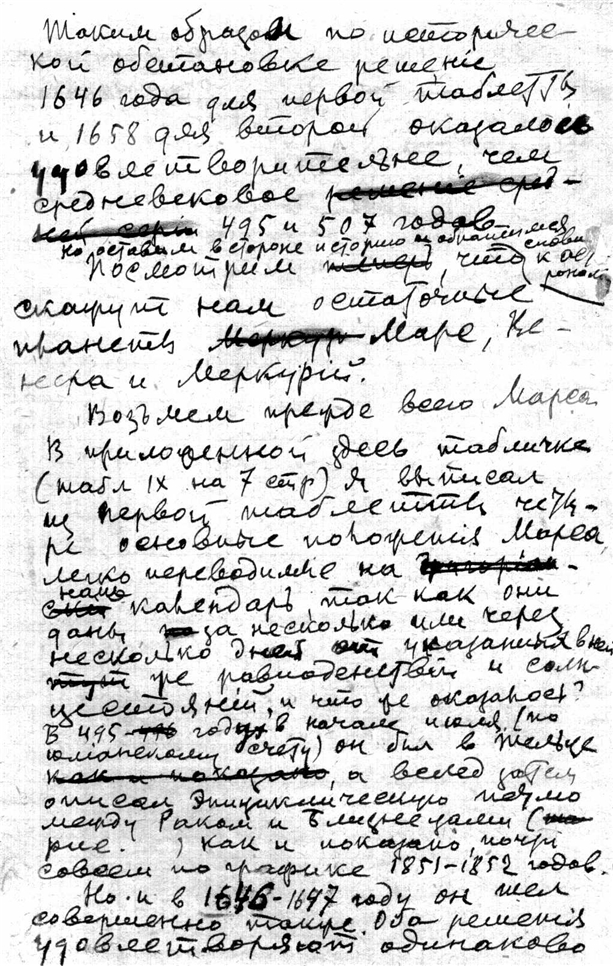 Таким образом по историчес-
кой обстановке решенiе
1646 года для первой таблетты
и 1658 для второй оказалось
удовлетворительнее, чем
средневековое решенiе сред-
ней серiи 495 и 507 годов
но оставим в стороне историю и обратимся снова
Посмотрим теперь, что
скажут нам остаточные
планеты Меркур Марс, Ве-
нера и Меркурий.
Возьмем прежде всего Марса
В приложенной здесь табличке
(табл IX на 7 стр) я выписал
из первой таблетты четы-
ре основные положенiя Марса,
легко переводимые на
наш календарь, так как они
даны за несколько или через
несколько дней от указанных в ней
же равноденствий и солн-
цестоянiй, и что же оказалось?
В 495 году в начале июля (по
юлiанскому счету) он был в Тельце
как и показано, а вслед затем
описал эпициклическую петлю
между Раком и Близнецами (
рис. ) как и показано, почти
совсем по графике 1851-1852 годов.
Но и в 1646-1647 году он шел
совершенно также. Оба решения
удовлетворяют одинаково